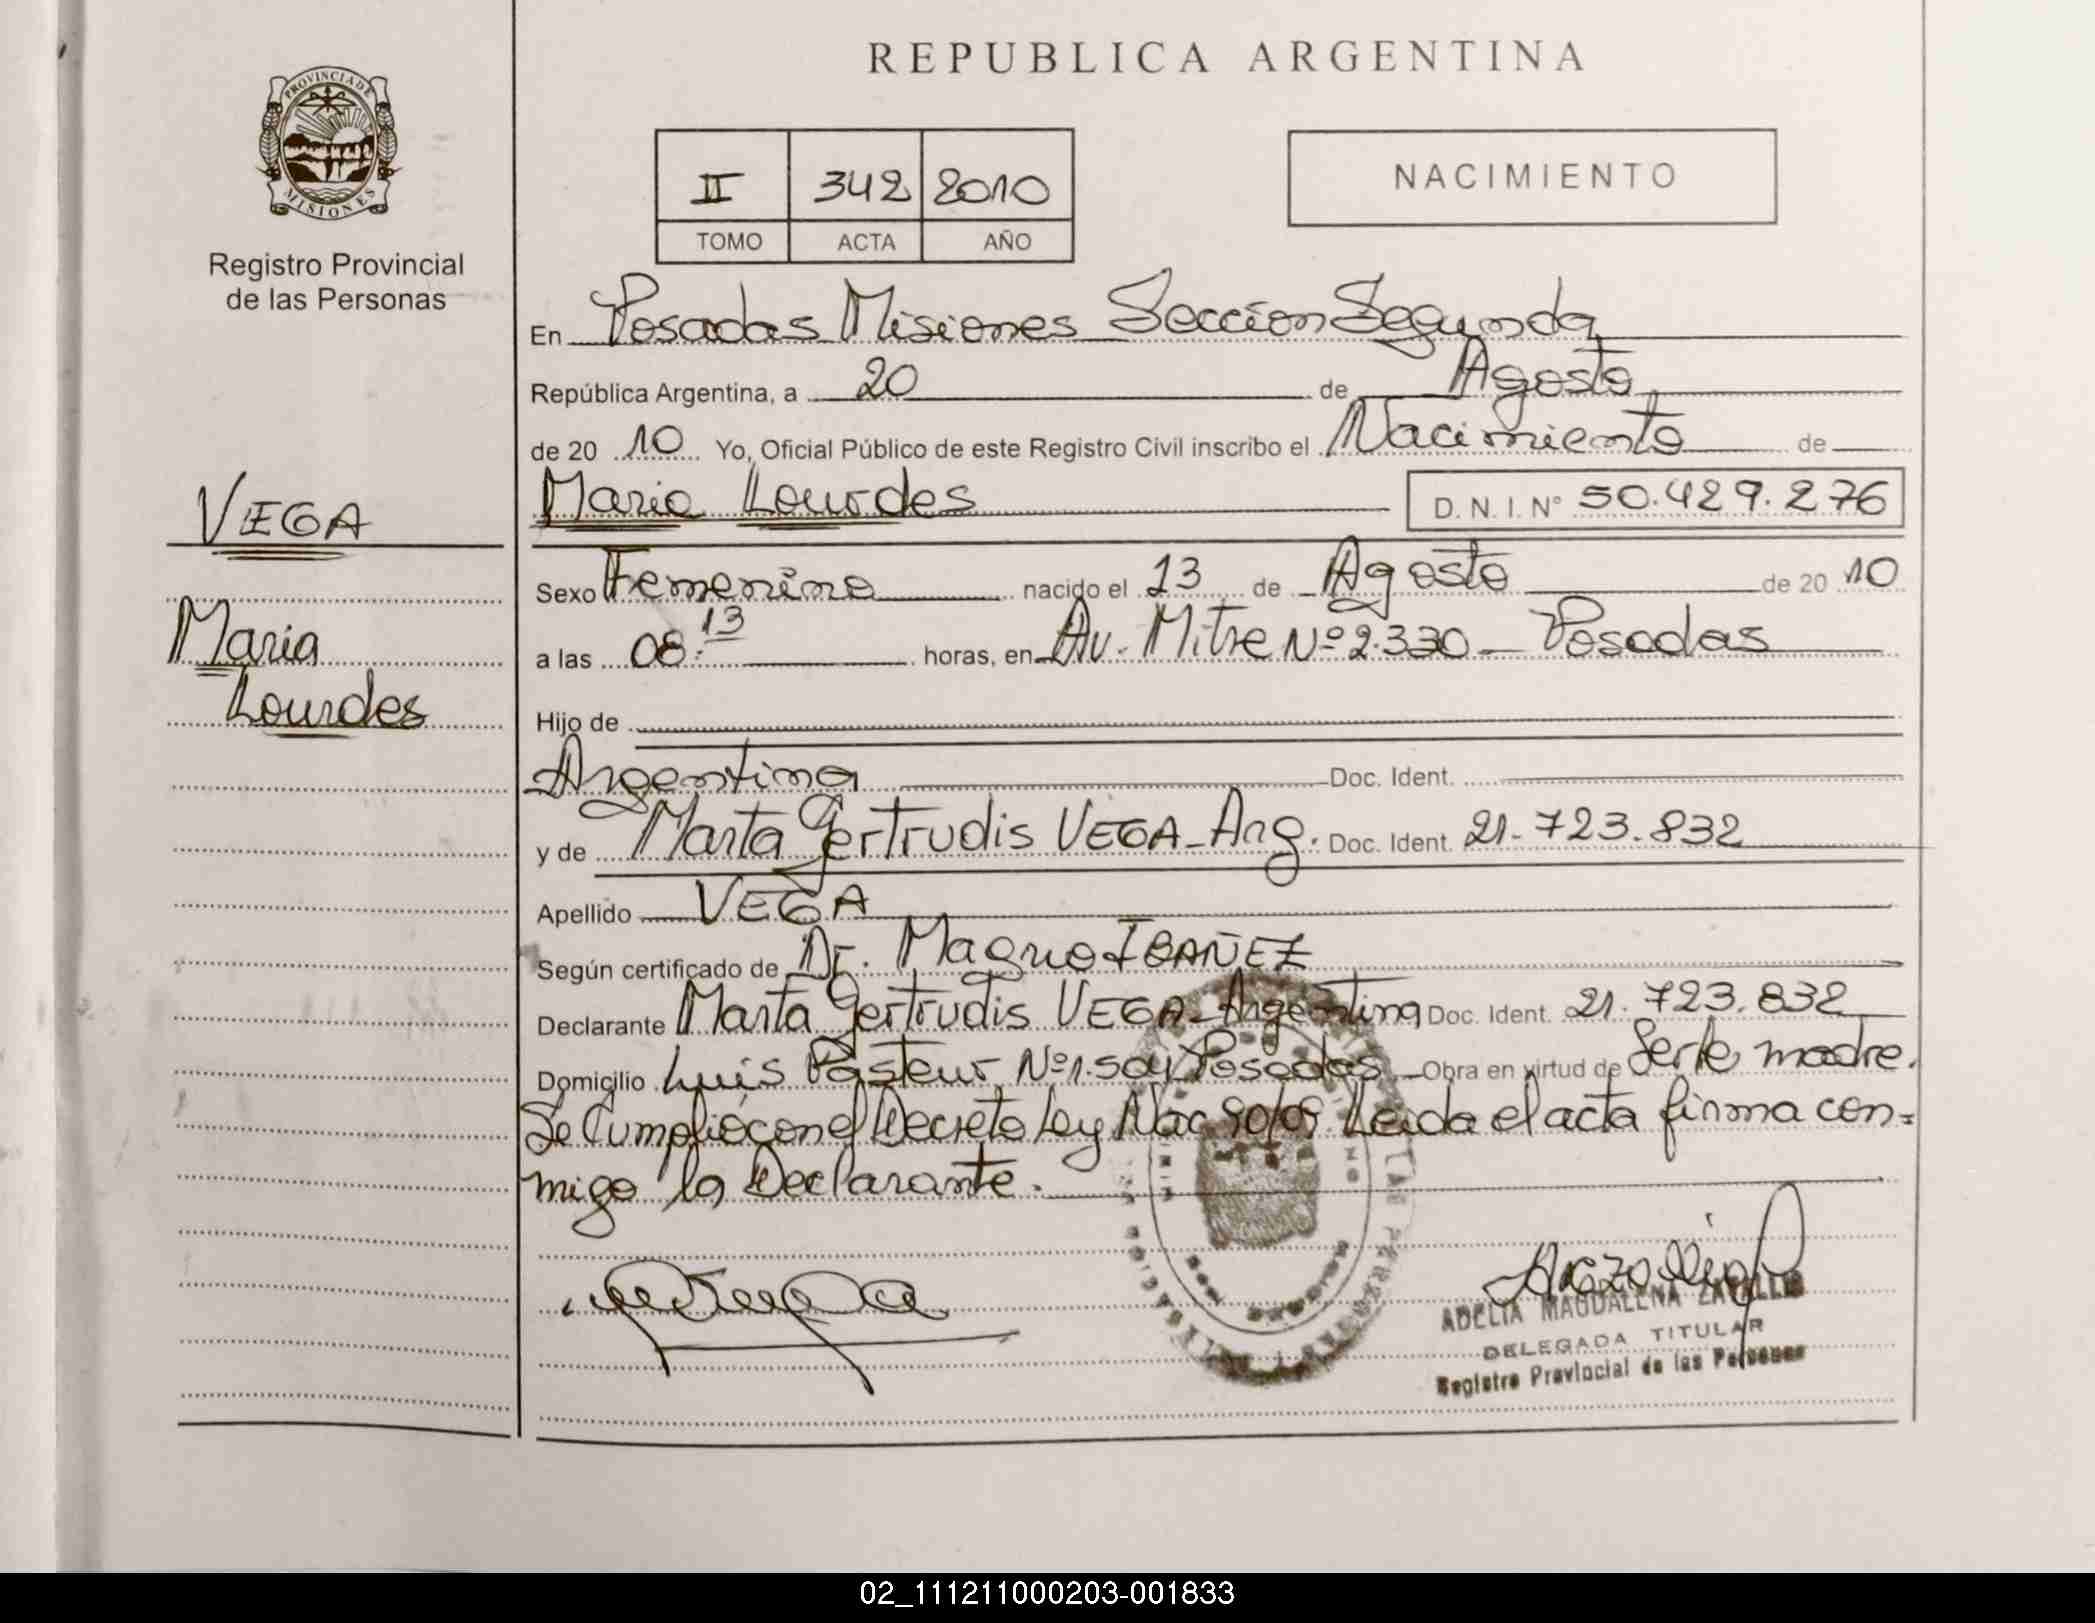 REPUBLICA ARGENTINA
PROVINCIA DE
MISIONES
Registro Provincial
de las Personas
II 342 2010
TOMO ACTA AÑO
NACIMIENTO
En Posadas Misiones Sección Segunda
República Argentina, a 20 de Agosto
de 20 10 Yo, Oficial Público de este Registro Civil inscribo el Nacimiento de
Maria Lourdes D.N.I. Nº 50.429.276
VEGA
Maria
Lourdes
Sexo Femenino nacido el 13 de Agosto de 20 10
a las 08:13 horas, en Av. Mitre Nº 2.330 - Posadas
Hijo de
Argentina Doc. Ident.
y de Marta Gertrudis VEGA - Arg. Doc. Ident. 21.723.832
Apellido VEGA
Según certificado de Dr. Magno IBAÑEZ
Declarante Marta Gertrudis VEGA - Argentina Doc. Ident. 21.723.832
Domicilio Luis Pasteur Nº 1.504 Posadas - Obra en virtud de Ser le madre.
Se Cumplió con el Decreto Ley Nac 90/09 Leida el acta firma con=
migo la Declarante.
ADELIA MAGDALENA
DELEGADA TITULAR
Registro Provincial de las Personas
02_111211000203-001833